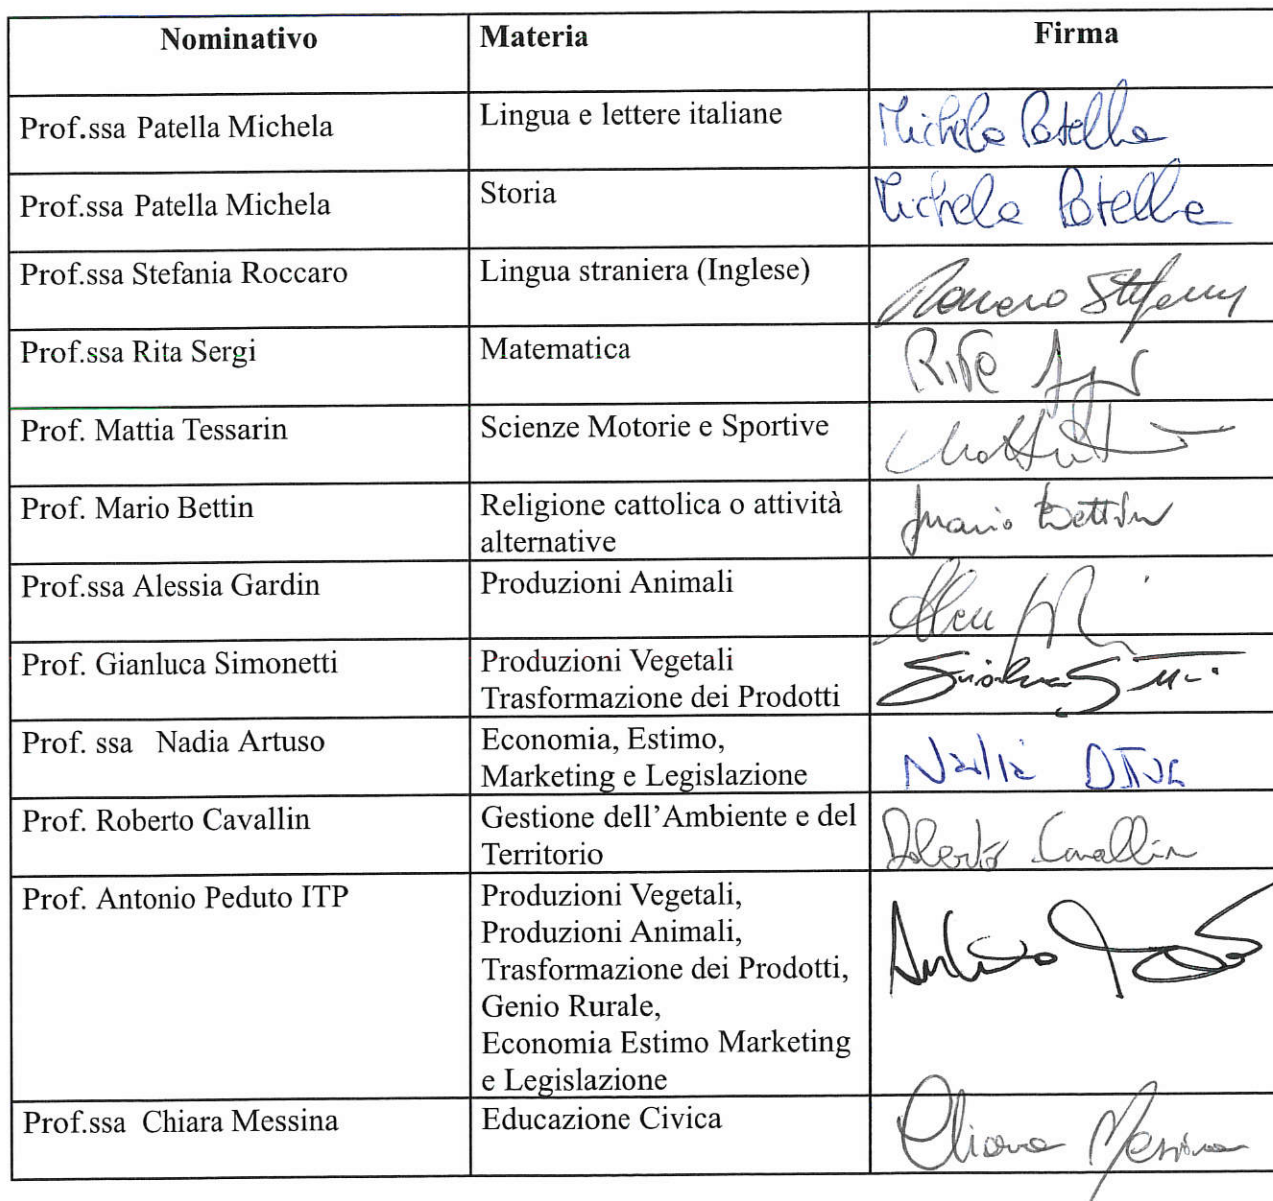 Nominativo Materia Firma
Prof.ssa Patella Michela Lingua e lettere italiane Michela Patella
Prof.ssa Patella Michela Storia Michela Patella
Prof.ssa Stefania Roccaro Lingua straniera (Inglese)
Prof.ssa Rita Sergi Matematica Rita
Prof. Mattia Tessarin Scienze Motorie e Sportive
Prof. Mario Bettin Religione cattolica o attività Mario Bettin
alternative
Prof.ssa Alessia Gardin Produzioni Animali
Prof. Gianluca Simonetti Produzioni Vegetali
Trasformazione dei Prodotti
Prof. ssa Nadia Artuso Economia, Estimo, Nadia
Marketing e Legislazione
Prof. Roberto Cavallin Gestione dell’Ambiente e del Roberto Cavallin
Territorio
Prof. Antonio Peduto ITP Produzioni Vegetali, Antonio
Produzioni Animali,
Trasformazione dei Prodotti,
Genio Rurale,
Economia Estimo Marketing
e Legislazione
Prof.ssa Chiara Messina Educazione Civica Chiara Messina